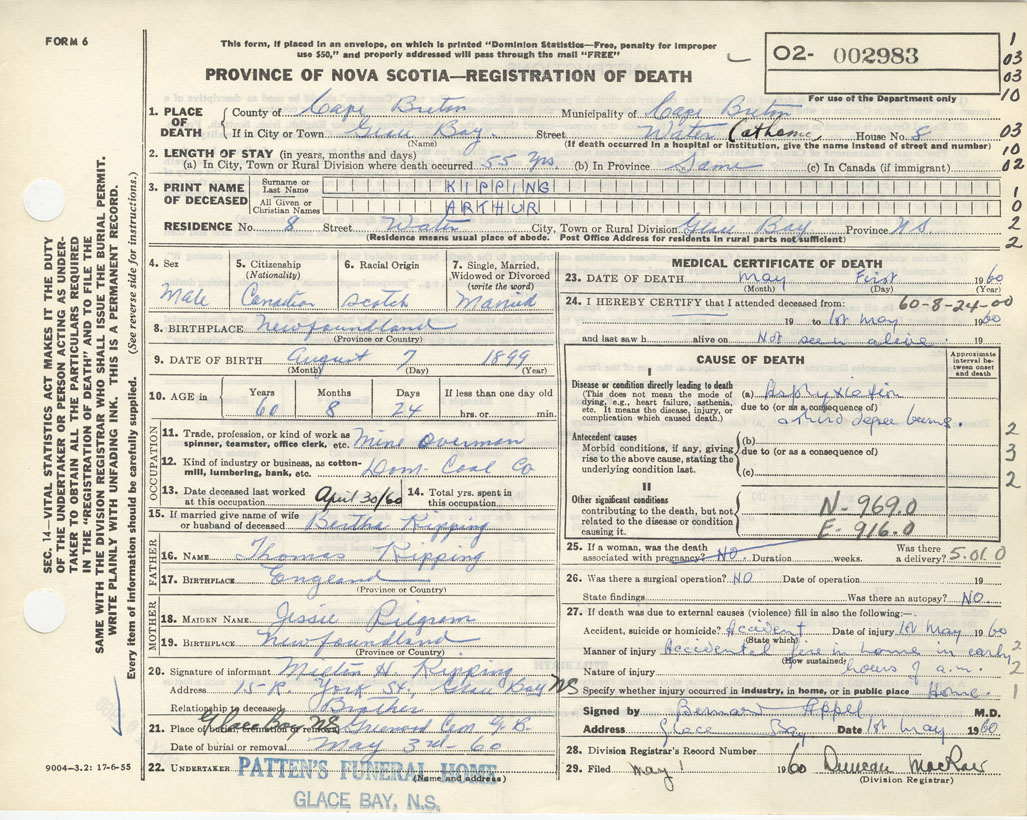 FORM 6
This form, if placed in an envelope, on which is printed "Dominion Statistics—Free, penalty for improper
use $50," and properly addressed will pass through the mail "FREE"
O2- 002983
PROVINCE OF NOVA SCOTIA—REGISTRATION OF DEATH
For use of the Department only
1
03
03
10
03
10
02
1
0
2
2
1. PLACE OF DEATH
County of Cape Breton Municipality of Cape Breton
If in City or Town Glace Bay Street Water (at home) House No. 8
(Name) (If death occurred in a hospital or institution, give the name instead of street and number)
2. LENGTH OF STAY (in years, months and days)
(a) In City, Town or Rural Division where death occurred 55 yrs. (b) In Province Same (c) In Canada (if immigrant)
3. PRINT NAME OF DECEASED
Surname or Last Name KIPPING
All Given or Christian Names ARTHUR
RESIDENCE No. 8 Street Water City, Town or Rural Division Glace Bay Province N.S.
(Residence means usual place of abode. Post Office Address for residents in rural parts not sufficient)
4. Sex
Male
5. Citizenship
(Nationality)
Canadian
6. Racial Origin
Scotch
7. Single, Married,
Widowed or Divorced
(write the word)
Married
8. BIRTHPLACE Newfoundland
(Province or Country)
9. DATE OF BIRTH August 7 1899
(Month) (Day) (Year)
10. AGE in
Years Months Days If less than one day old
60 8 24 hrs. or min.
OCCUPATION
11. Trade, profession, or kind of work as
spinner, teamster, office clerk, etc. Mine Overman
12. Kind of industry or business, as cotton-
mill, lumbering, bank, etc. Dom. Coal Co
13. Date deceased last worked
at this occupation April 30/60
14. Total yrs. spent in
this occupation
15. If married give name of wife
or husband of deceased Bertha Kipping
FATHER
16. NAME Thomas Kipping
17. BIRTHPLACE England
(Province or Country)
MOTHER
18. MAIDEN NAME Jessie Pilgram
19. BIRTHPLACE Newfoundland
(Province or Country)
20. Signature of informant Milton H. Kipping
Address 15-R. York St., Glace Bay NS
Relationship to deceased Brother
21. Place of burial, cremation or removal Glace Bay NS Greenwood Cem G.B.
Date of burial or removal May 3rd-60
22. UNDERTAKER PATTEN'S FUNERAL HOME
(Name and address)
GLACE BAY, N.S.
MEDICAL CERTIFICATE OF DEATH
23. DATE OF DEATH May First 1960
(Month) (Day) (Year)
24. I HEREBY CERTIFY that I attended deceased from: 60-8-24-00
19 to 1st May 1960
and last saw h alive on Not seen alive. 19
CAUSE OF DEATH
Approximate
interval between
onset
and death
I
Disease or condition directly leading to death
(This does not mean the mode of
dying, e.g., heart failure, asthenia,
etc. It means the disease, injury, or
complication which caused death.)
(a) Asphyxiation
due to (or as a consequence of)
+ third degree burns.
Antecedent causes
Morbid conditions, if any, giving
rise to the above cause, stating the
underlying condition last.
(b)
due to (or as a consequence of)
(c)
II
Other significant conditions
contributing to the death, but not
related to the disease or condition
causing it.
N-969.0
E-916.0
2
3
2
25. If a woman, was the death
associated with pregnancy? NO. Duration weeks. Was there
a delivery? 5.01.0
26. Was there a surgical operation? NO Date of operation 19
State findings Was there an autopsy? NO.
27. If death was due to external causes (violence) fill in also the following:—
Accident, suicide or homicide? Accident Date of injury 1st May 1960
(State which)
Manner of injury Accidental fire in home in early
(How sustained)
Nature of injury hours of a.m.
Specify whether injury occurred in industry, in home, or in public place Home.
2
2
1
Signed by Bernard Appel M.D.
Address Glace Bay Date 1st May 1960
28. Division Registrar's Record Number
29. Filed May 1 1960 Duncan MacRae
(Division Registrar)
SEC. 14—VITAL STATISTICS ACT MAKES IT THE DUTY
OF THE UNDERTAKER OR PERSON ACTING AS UNDER-
TAKER TO OBTAIN ALL THE PARTICULARS REQUIRED
IN THE "REGISTRATION OF DEATH" AND TO FILE THE
SAME WITH THE DIVISION REGISTRAR WHO SHALL ISSUE THE BURIAL PERMIT.
WRITE PLAINLY WITH UNFADING INK. THIS IS A PERMANENT RECORD.
Every item of information should be carefully supplied. (See reverse side for instructions.)
9004—3.2: 17-6-55